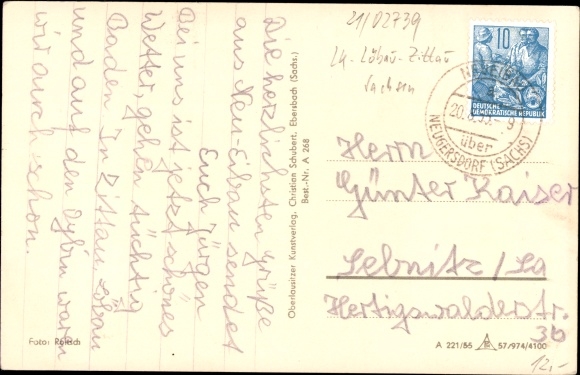 Die herzlichsten Grüße
aus Neu-Eibau sendet
Euch Jürgen
Bei uns ist jetzt schönes
Wetter, gehen tüchtig
Baden. In Zittau, Löbau
und auf den Oybin waren
wir auch schon.
Foto:
Oberlausitzer Kunstverlag, Christian Schubert, Ebersbach (Sachs.)
Best.-Nr. A 268
21/02739
Lk. Löbau-Zittau
Sachsen
10
DEUTSCHE
DEMOKRATISCHE REPUBLIK
über
NEUGERSDORF (SACHS)
Herrn
Günter Kaiser
Sebnitz/Sa
Hertigswalderstr.
36
A 221/56 57/974/4100
12,-